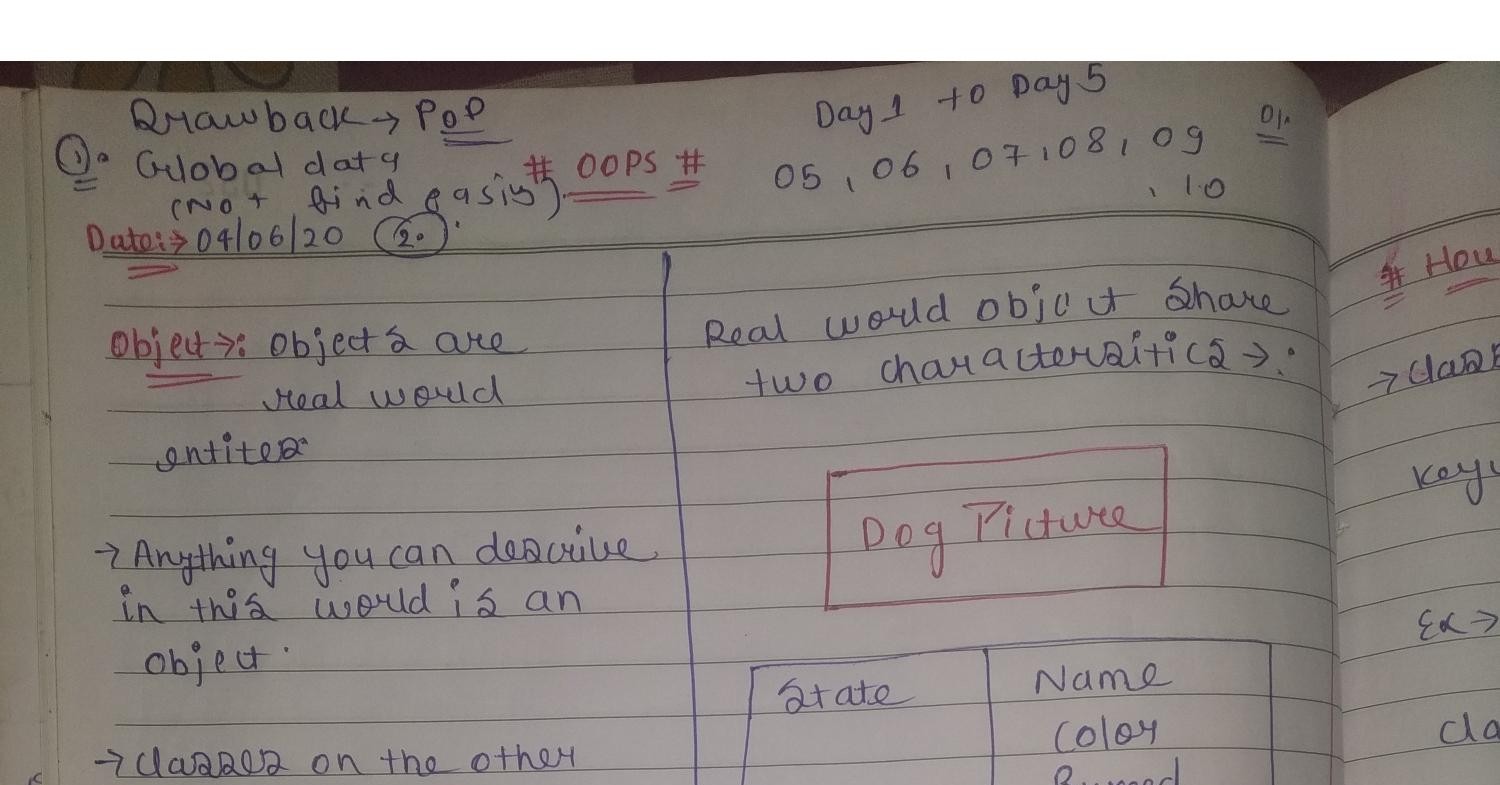 Drawback → POP
①. Global data
(Not find easily).
# OOPS #
Day 1 to Day 5
05, 06, 07, 08, 09
, 10
01.
Date:→ 04/06/20 (2.)
Object→: Objects are
real world
entites.
→ Anything you can describe
in this world is an
object.
→ Classes on the other
Real world object share
two charactersitics →:
Dog Picture
State Name
Color
# How
→ class
Key
Ex →
cla